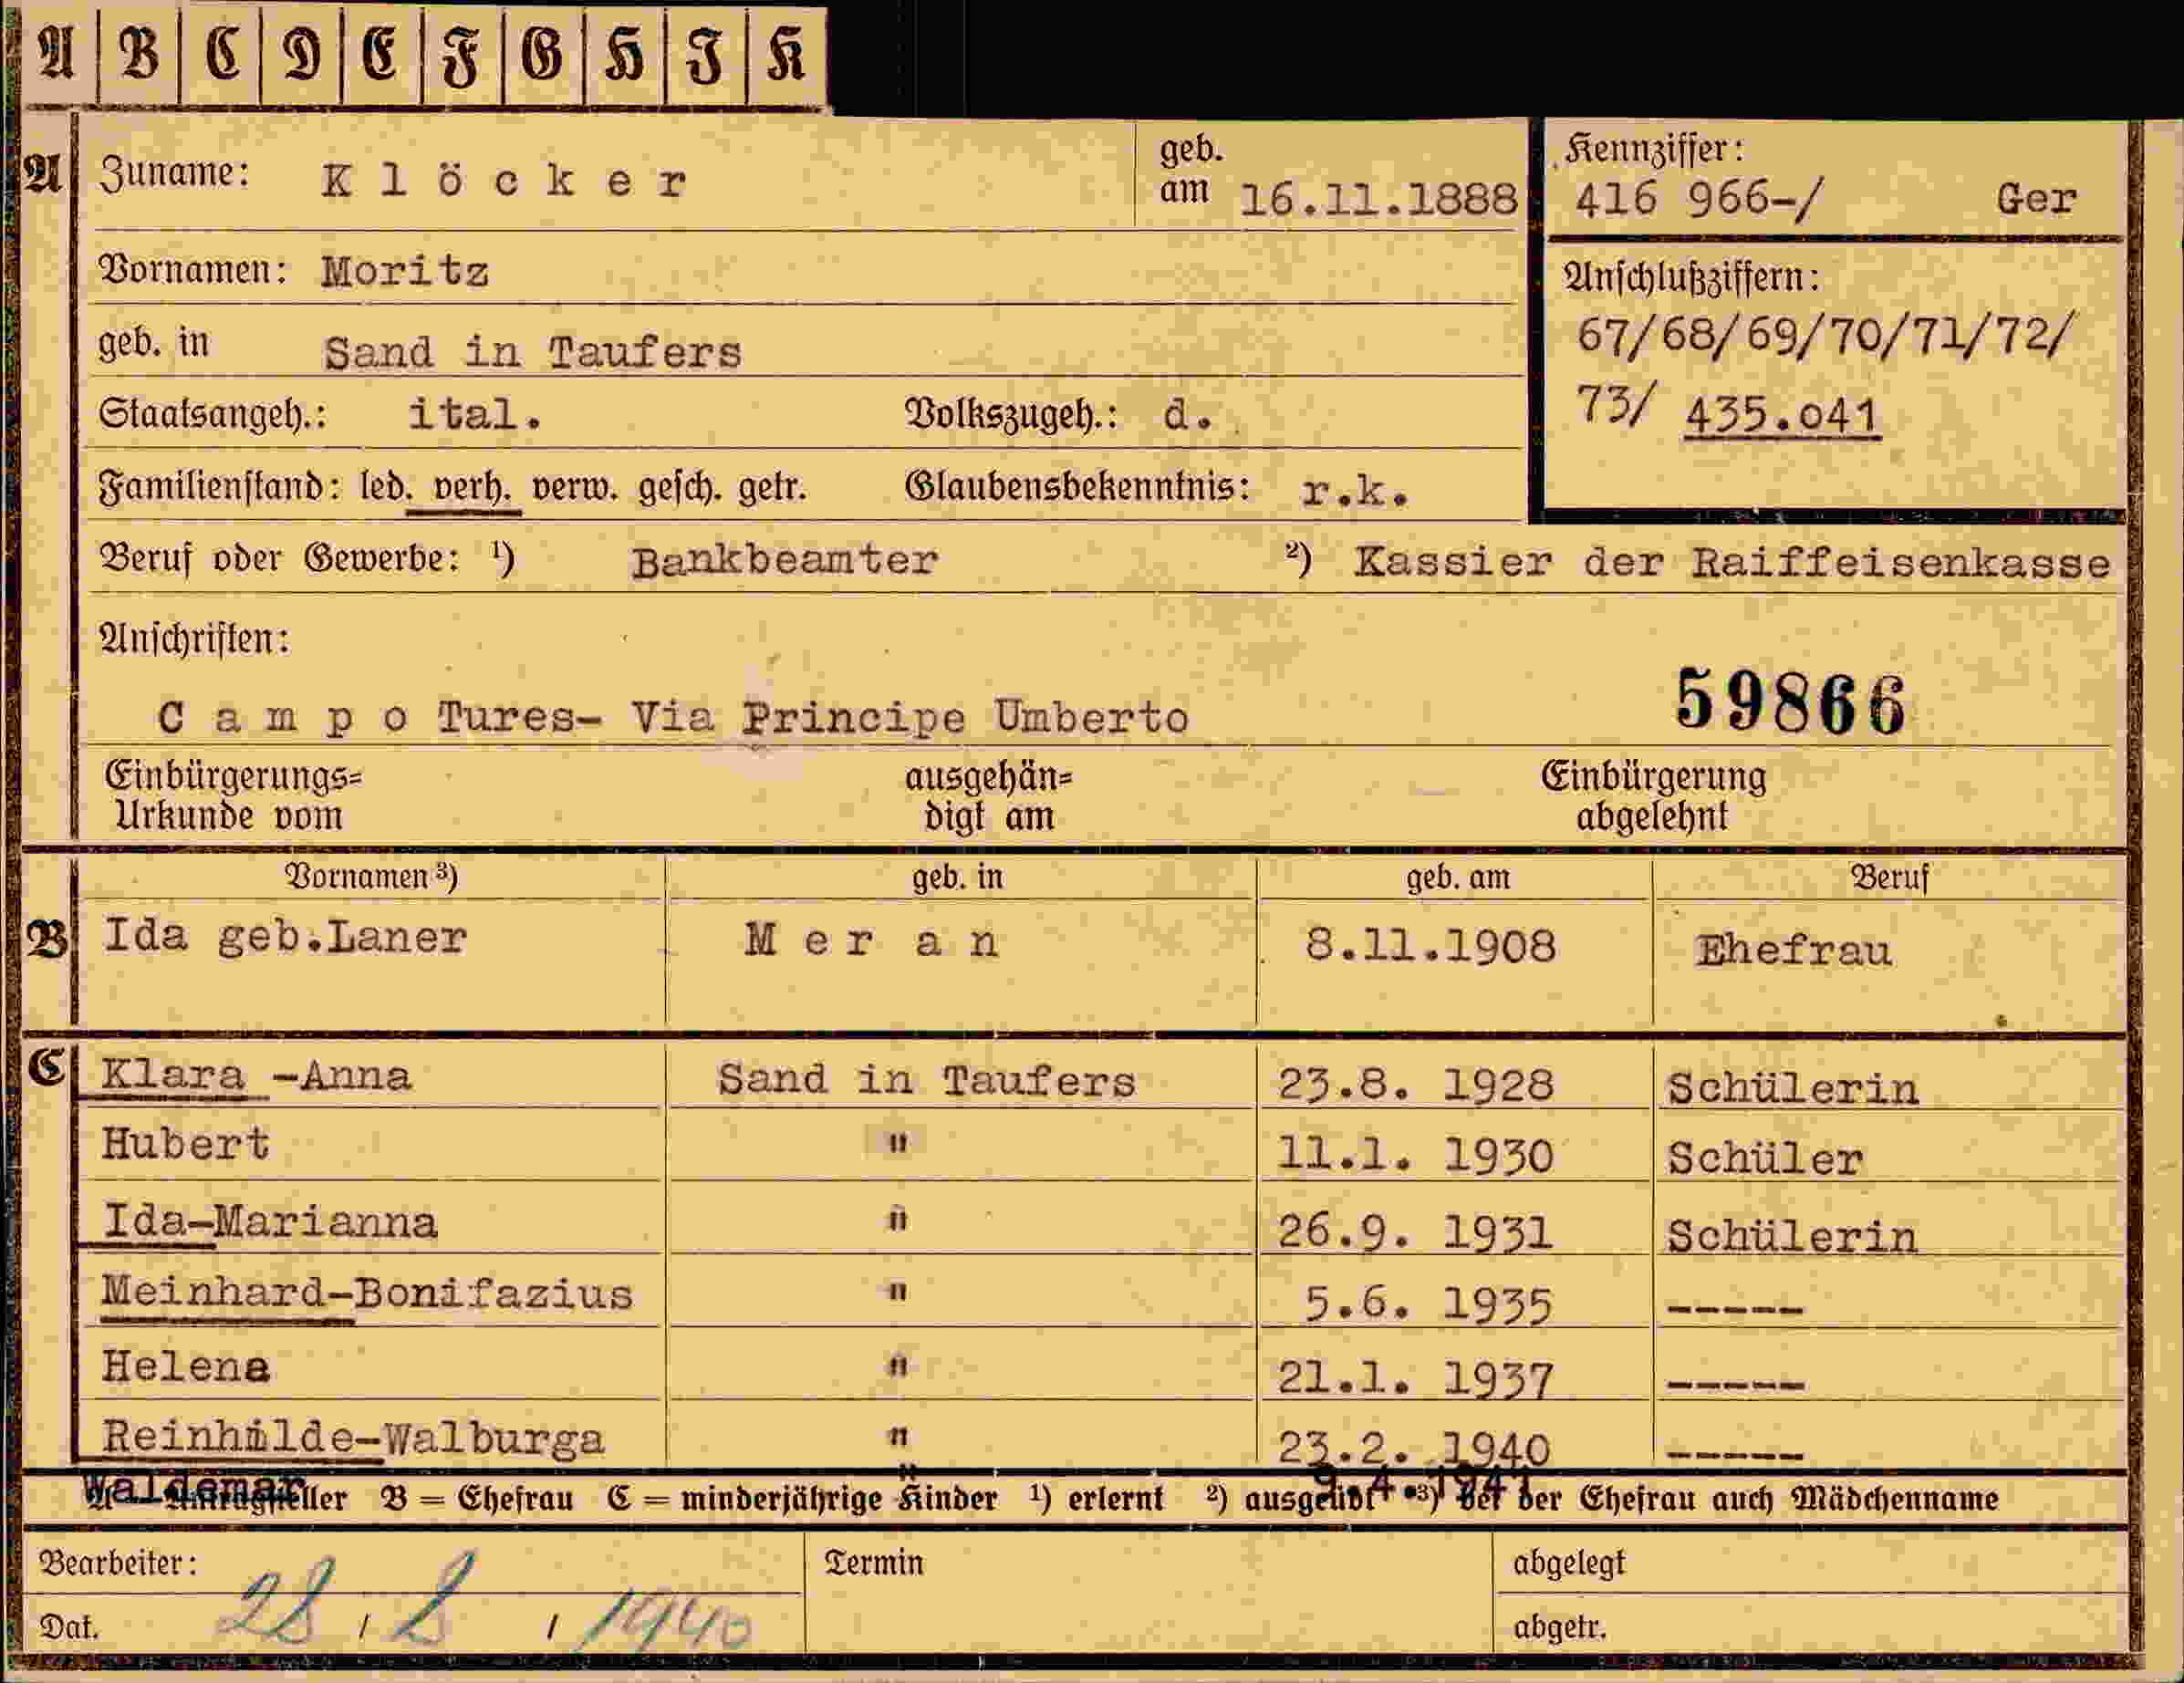 A B C D E F G H I K
A Zuname: Klöcker geb. am 16.11.1888
Kennziffer:
416 966-/ Ger
Vornamen: Moritz
Anschlußziffern:
67/68/69/70/71/72/
73/ 435.041
geb. in Sand in Taufers
Staatsangeh.: ital. Volkszugeh.: d.
Familienstand: led. verh. verw. gesch. getr. Glaubensbekenntnis: r.k.
Beruf oder Gewerbe: ¹) Bankbeamter ²) Kassier der Raiffeisenkasse
Anschriften:
Campo Tures- Via Principe Umberto
59866
Einbürgerungs= ausgehän= Einbürgerung
Urkunde vom digt am abgelehnt
Vornamen ³) geb. in geb. am Beruf
B Ida geb.Laner Meran 8.11.1908 Ehefrau
C Klara -Anna Sand in Taufers 23.8. 1928 Schülerin
Hubert " 11.1. 1930 Schüler
Ida-Marianna " 26.9. 1931 Schülerin
Meinhard-Bonifazius " 5.6. 1935 -----
Helena " 21.1. 1937 -----
Reinhilde-Walburga " 23.2. 1940 -----
Waldemar " 9.4.1941
B = Ehefrau C = minderjährige Kinder ¹) erlernt ²) ausgeübt ³) bei der Ehefrau auch Mädchenname
Bearbeiter: Termin abgelegt
Dat. 28 / 8 / 1940 abgetr.